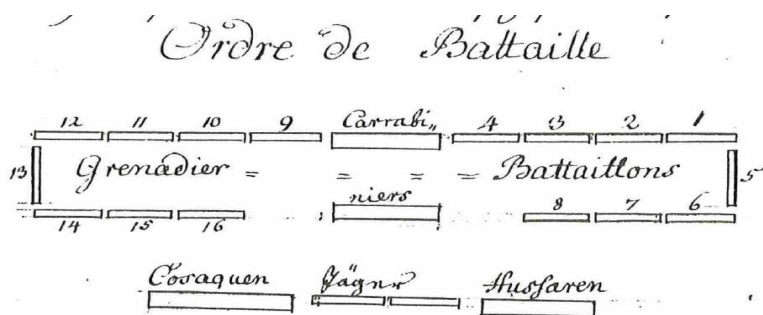 Ordre de Battaille
12 11 10 9 Carrabi„ 4 3 2 1
13 Grenadier = = = = Battaillons 5
niers
14 15 16 8 7 6
Cosaquen Jäger Hussaren